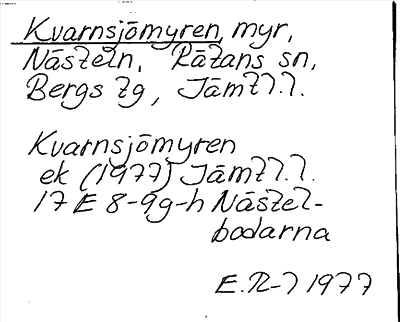 Kvarnsjömyren, myr,
Nästeln, Rätans sn,
Bergs tg, Jämtl.l.
Kvarnsjömyren
ek (1977) Jämtl.l.
17 E 8-9g-h Nästel-
bodarna
E.R-l 1977